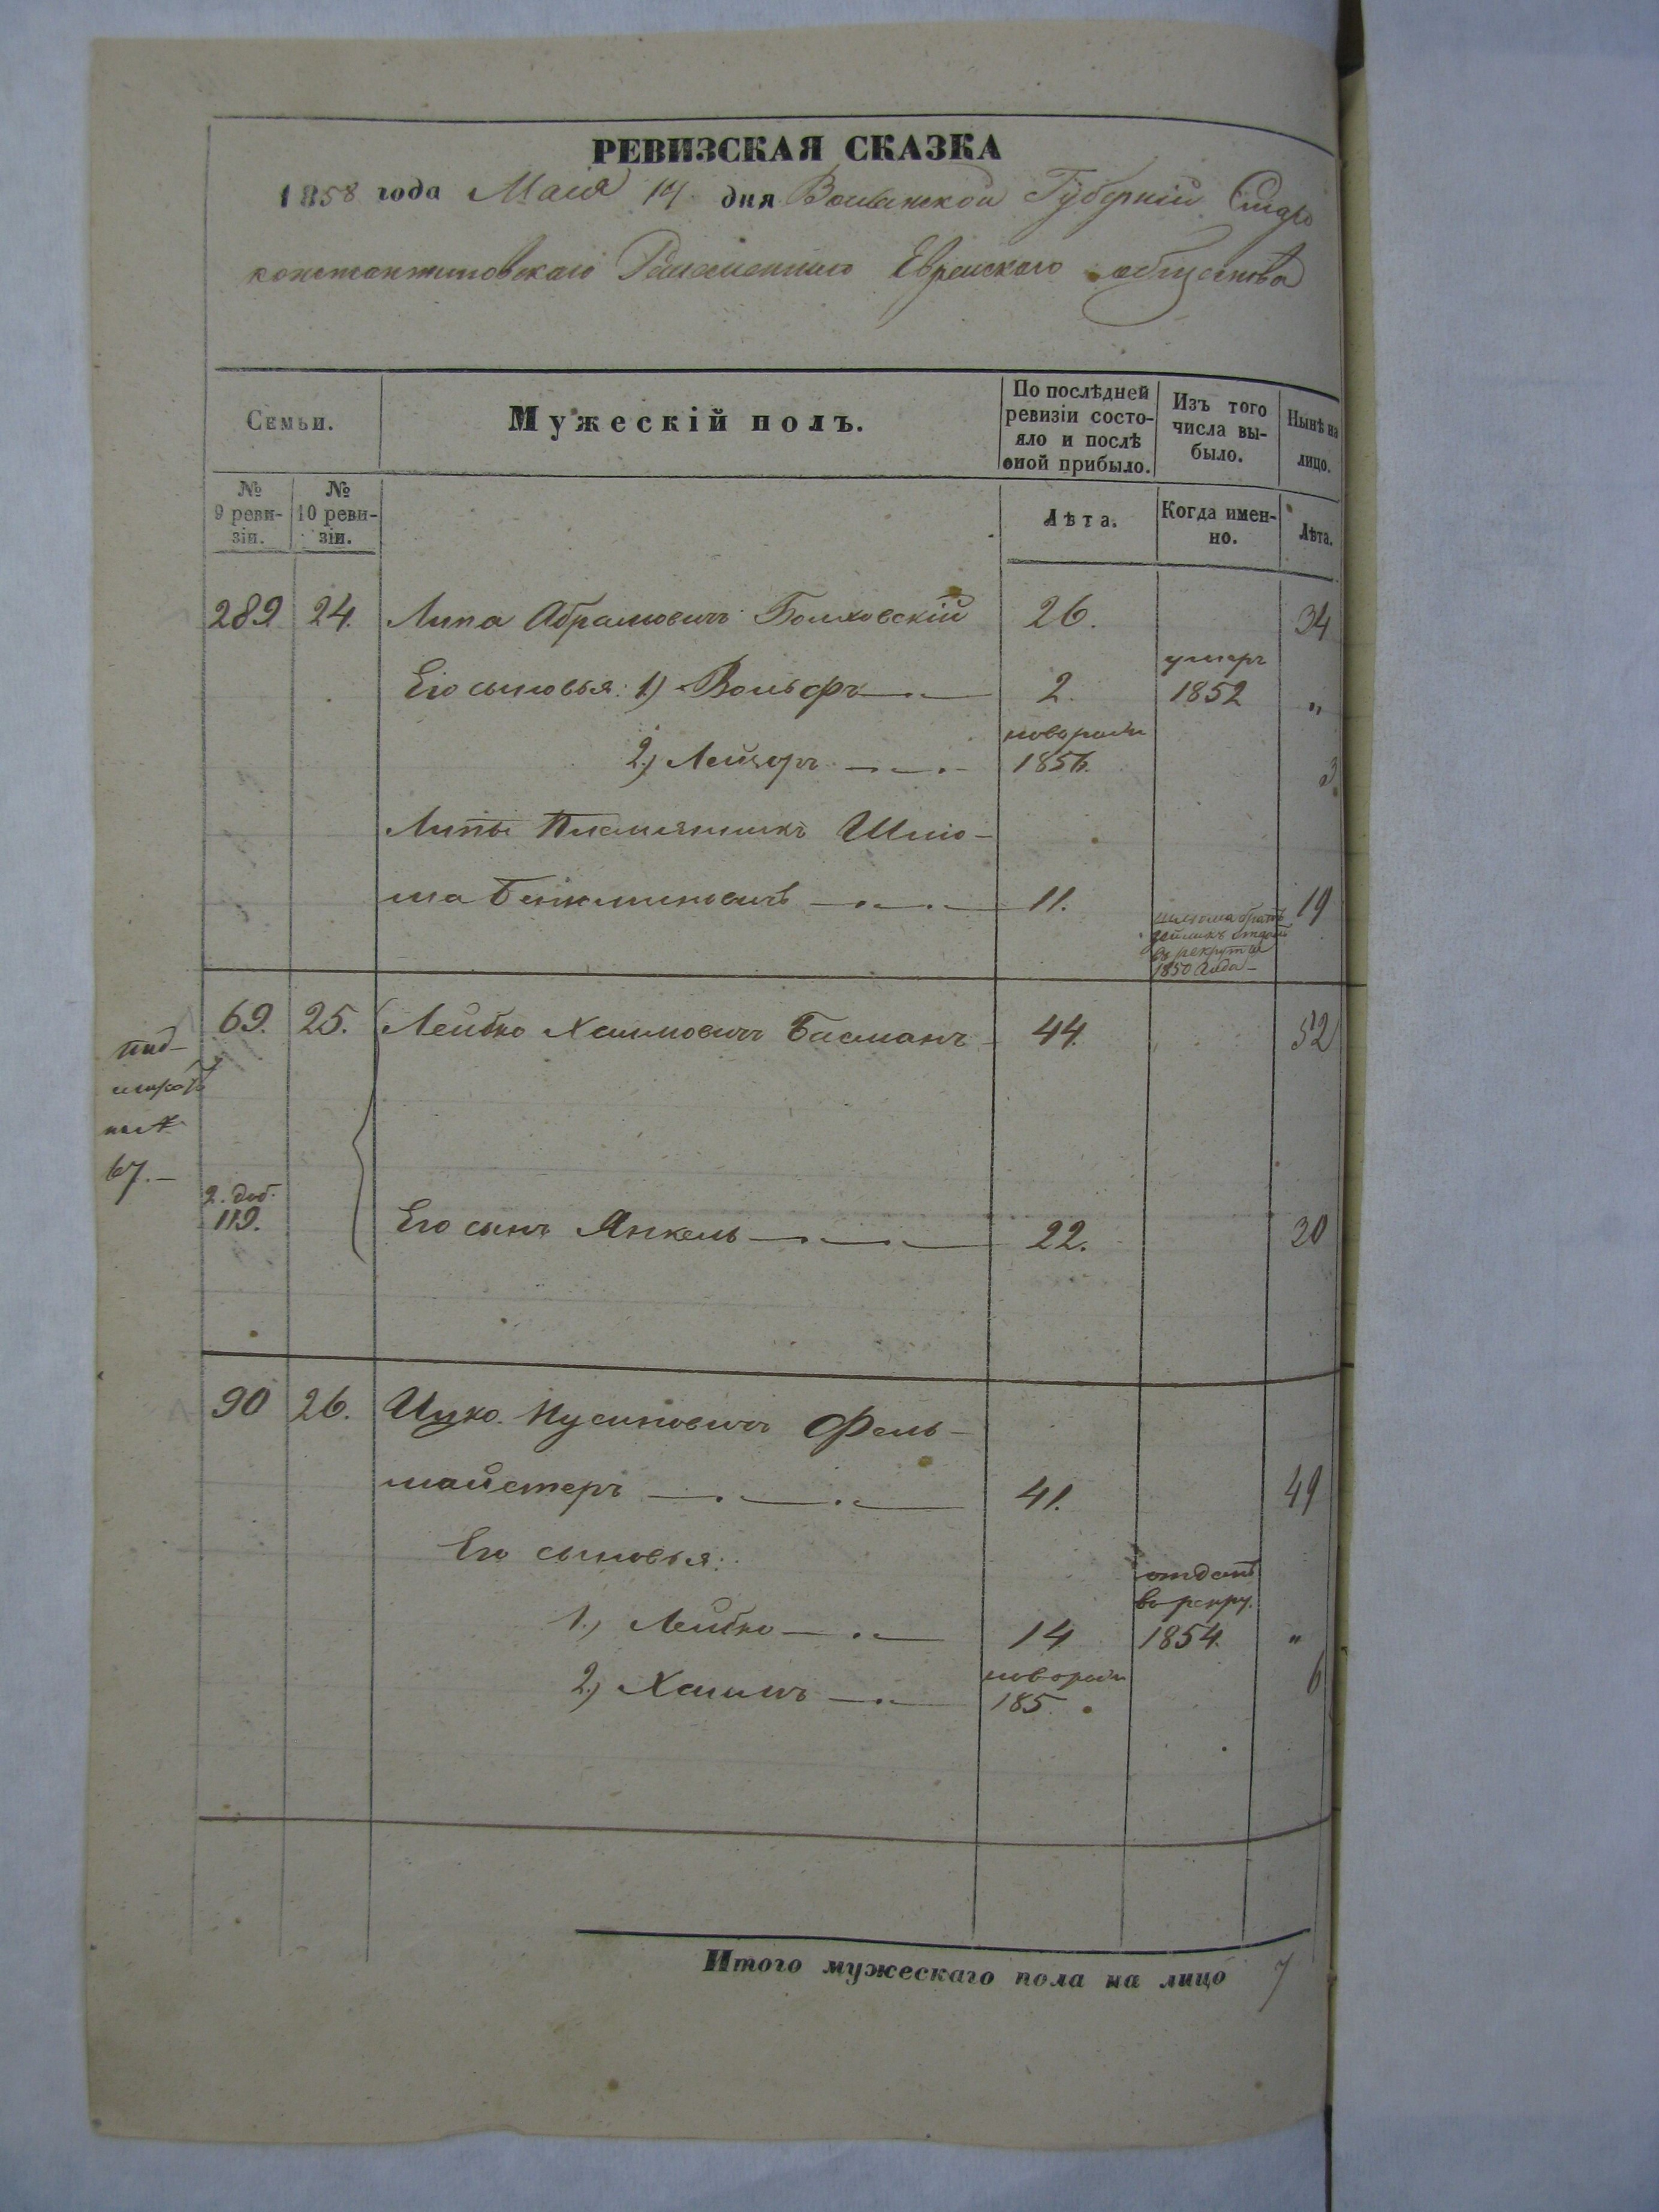 РЕВИЗСКАЯ СКАЗКА
1858 года Маия 17 дня Волынской Губерніи Старо
константиновскаго Ремесленнаго Еврейскаго общества
Семьи.
Мужескій полъ.
По послѣдней ревизіи состо-
яло и послѣ
оной прибыло.
Изъ того
числа вы-
было.
Нынѣ на
лицо.
№
9 реви-
зіи.
№
10 реви-
зіи.
Лѣта.
Когда имен-
но.
Лѣта.
289 24. Липа Абрамовичъ Болховскій 26. 34
Его сыновья: 1) Вольфъ 2. умеръ 1852 „
2.) Лейзоръ новорожд 1856. 3
Липы Племянникъ Шлио-
ма Бенюминовичъ 11. 19
братъ
отданъ
въ рекруты
1850 года
69. 25. Лейбко Хаимовичъ Басманъ 44. 52
67.
2. доб.
119. Его сынъ Янкель 22. 30
90 26. Ицко Нусиновичъ Фель-
майстеръ 41. 49
Его сыновья:
1.) Лейбко 14 отданъ
въ рекру.
1854. „
2.) Хаимъ новорожд
185 . 6
Итого мужескаго пола на лицо 7